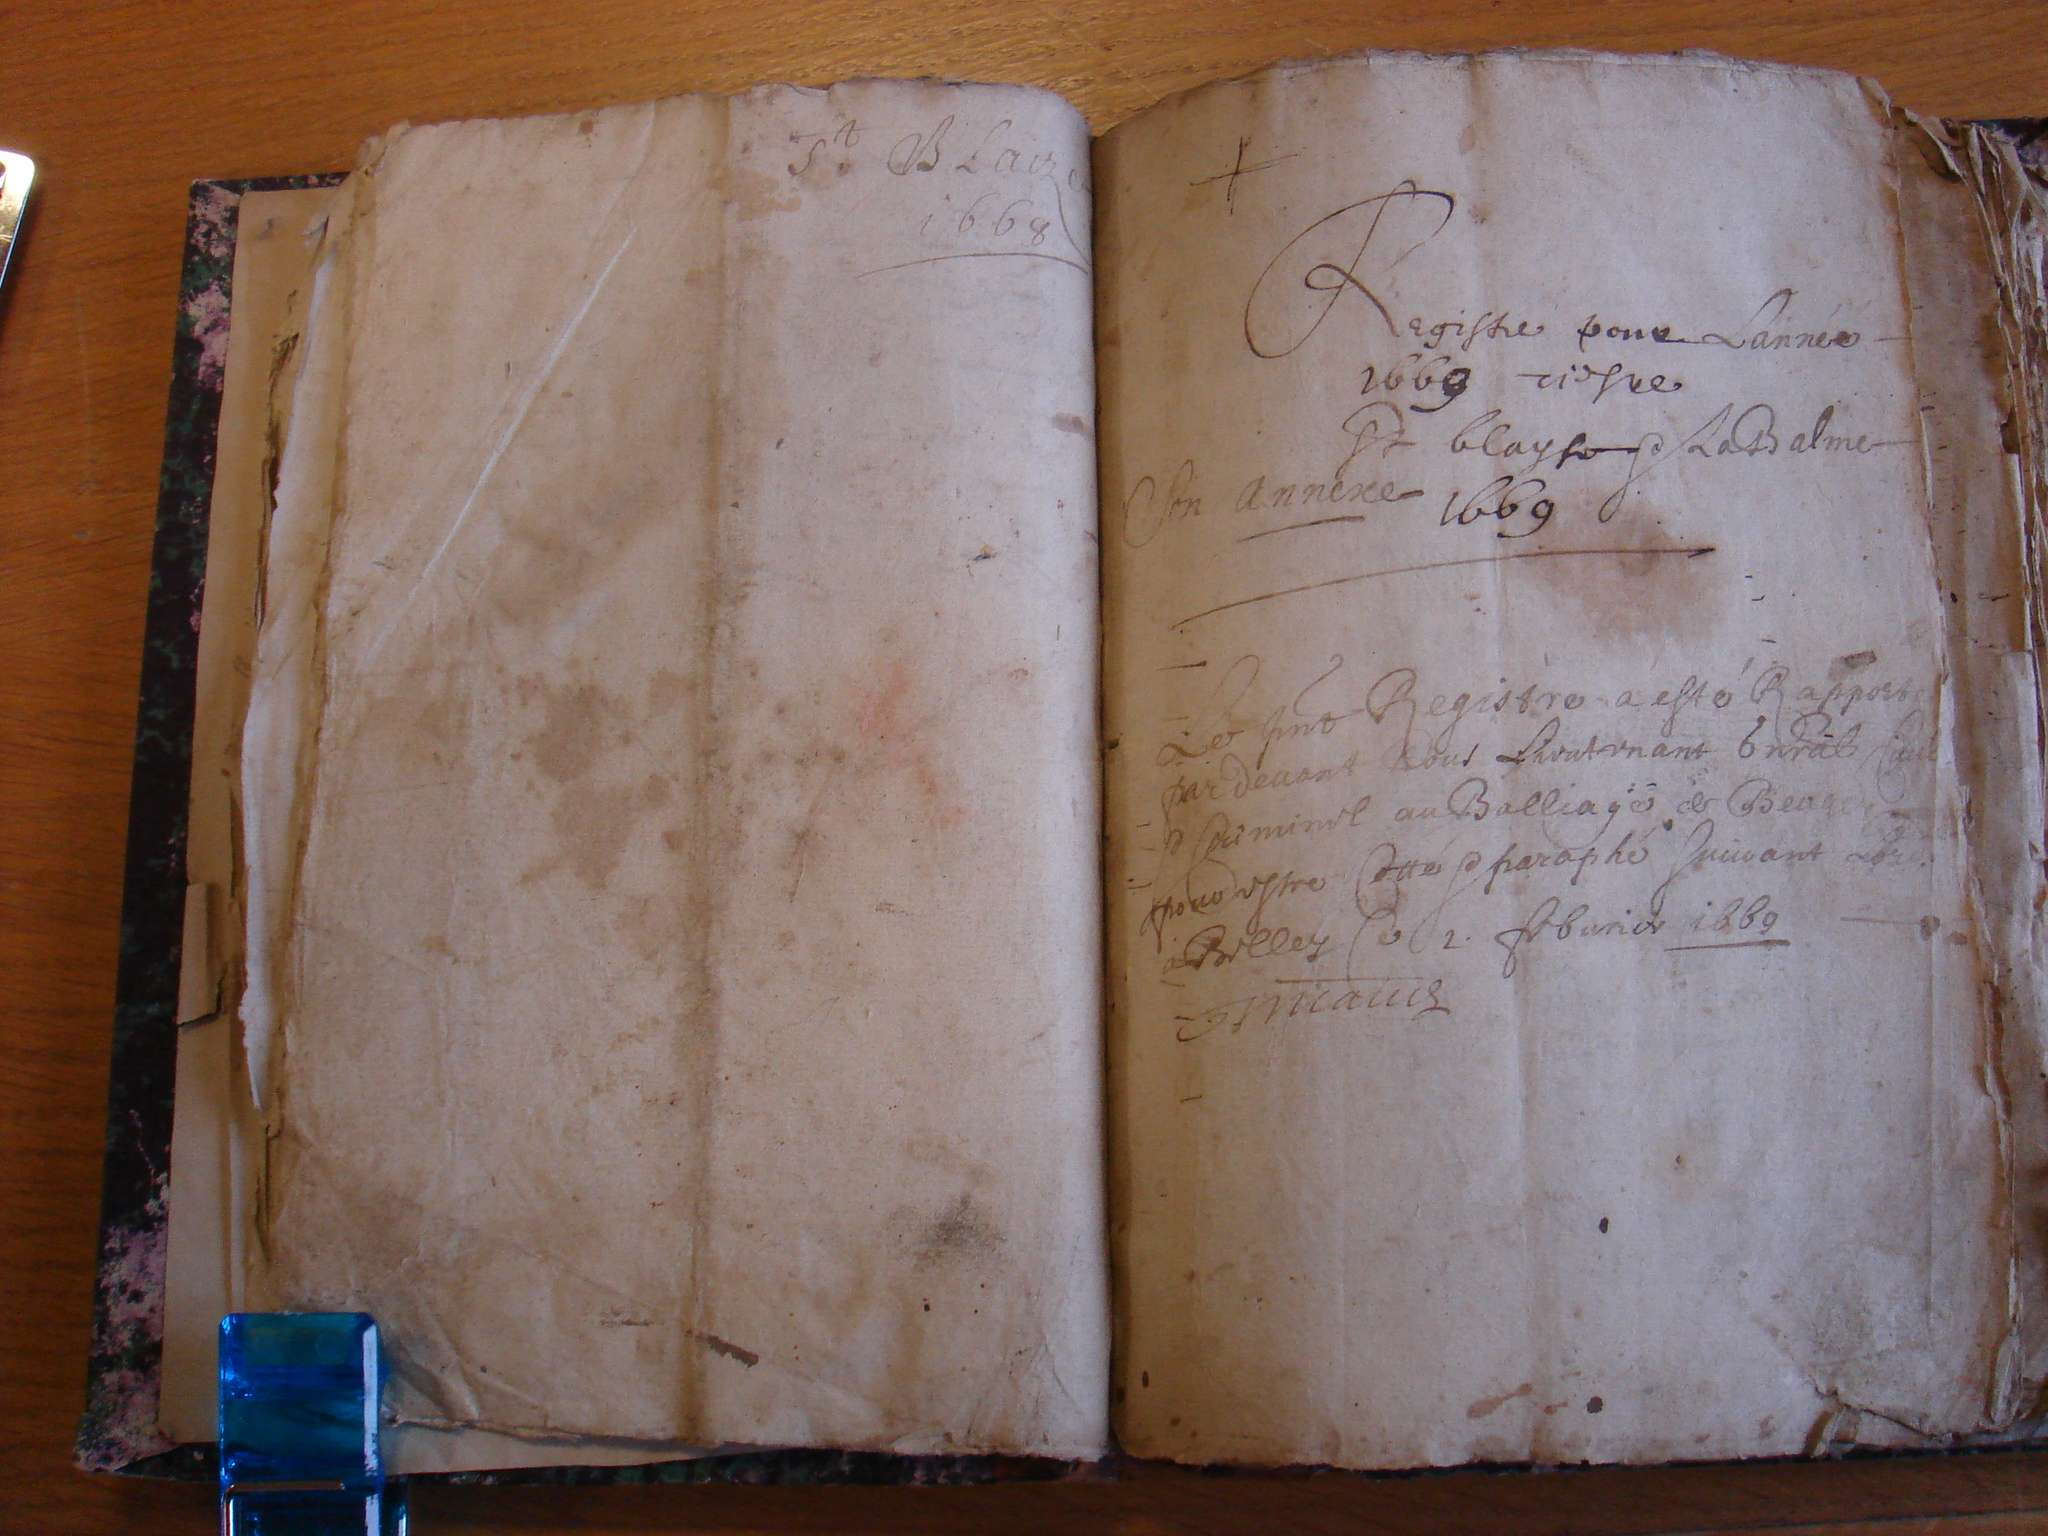 St Blaize
1668
Registre pour Lannée
1669
St blayse & La Balme
Son Annexe 1669
Le pnt Registre a esté Rapporté
pardevant Nous Lieutenant gnral Ciuil
& Criminel au Balliage de Beugey
pour estre Cotté & paraphé suiuant
a Belley Ce 2. feburier 1669